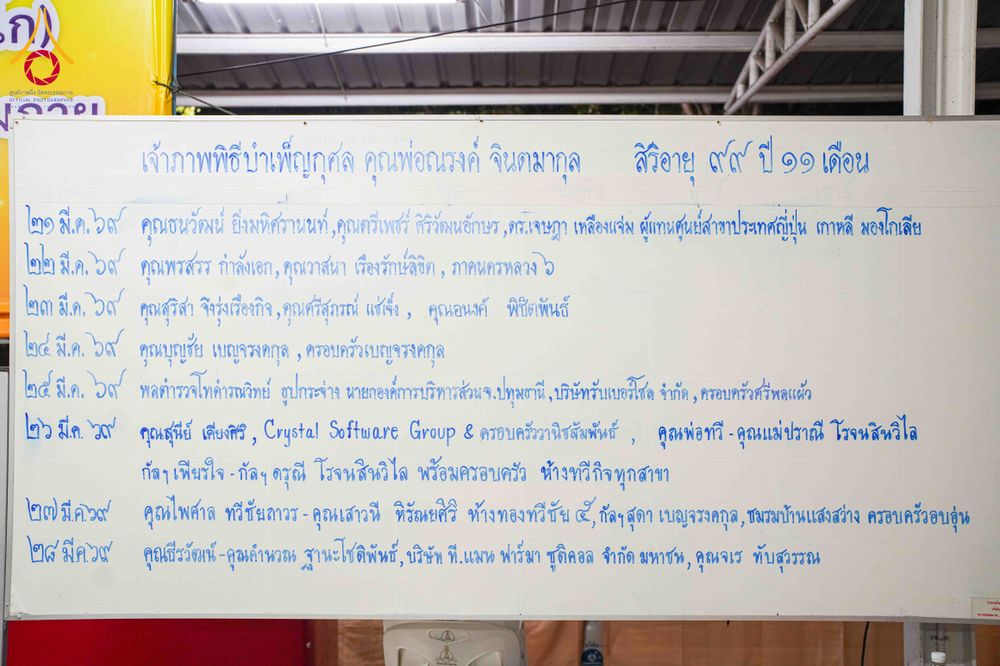 ึก)
ศูนย์ภาพนิ่ง วัดพระธรรมกาย
OFFICIAL PHOTOGRAPHER
มกาย
เจ้าภาพพิธีบำเพ็ญกุศล คุณพ่อณรงค์ จินตมากุล สิริอายุ ๙๙ ปี ๑๑ เดือน
๒๑ มี.ค. ๖๙ คุณธนวัฒน์ ยิ่งมหิศรานนท์, คุณตรีเพชร์ ศิริวัฒนอักษร, ดร.เจษฎา เหลืองแจ่ม ผู้แทนศูนย์สาขาประเทศญี่ปุ่น เกาหลี มองโกเลีย
๒๒ มี.ค. ๖๙ คุณพรสรร กำลังเอก, คุณวาสนา เรืองรักษ์ลิขิต, ภาคนครหลวง ๖
๒๓ มี.ค. ๖๙ คุณสุริสา จึงรุ่งเรืองกิจ, คุณศรีสุภรณ์ แซ่เจ็ง, คุณอนงค์ พิชิตพันธ์
๒๔ มี.ค. ๖๙ คุณบุญชัย เบญจรงคกุล, ครอบครัวเบญจรงคกุล
๒๕ มี.ค. ๖๙ พลตำรวจโทคำรณวิทย์ ธูปกระจ่าง นายกองค์การบริหารส่วนจ.ปทุมธานี, บริษัทรับเบอร์โซล จำกัด, ครอบครัวศรีพลแผ้ว
๒๖ มี.ค ๖๙ คุณสุนีย์ เคียงศิริ, Crystal Software Group & ครอบครัววานิชสัมพันธ์, คุณพ่อทวี - คุณแม่ปราณี โรจนสินวิไล
กัลฯ เพียรใจ - กัลฯ ดรุณี โรจนสินวิไล พร้อมครอบครัว ห้างทวีกิจทุกสาขา
๒๗ มี.ค ๖๙ คุณไพศาล ทวีชัยถาวร - คุณเสาวนี หิรัณยศิริ ห้างทองทวีชัย ๕, กัลฯ สุดา เบญจรงคกุล, ชมรมบ้านแสงสว่าง ครอบครัวอบอุ่น
๒๘ มี.ค ๖๙ คุณธีรวัฒน์ - คุณคำนวณ ฐานะโชติพันธ์, บริษัท ที.แมน ฟาร์มา ซูติคอล จำกัด มหาชน, คุณจเร ทับสุวรรณ